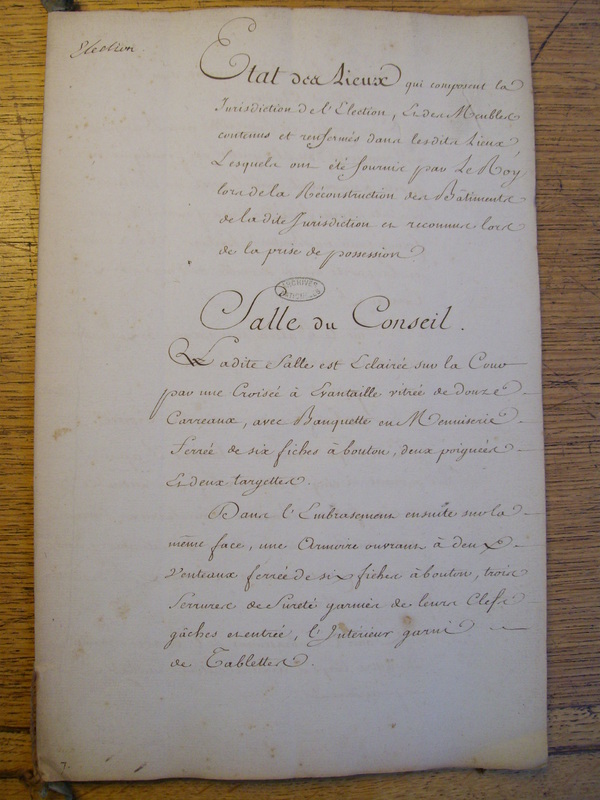 Election.
Etat des Lieux qui composent la
Jurisdiction de l'Election, et des Meubles
contenus et renfermés dans lesdits Lieux,
Lesquels ont été fournis par Le Roy
lors de la Réconstruction des Bâtiments
de la dite Jurisdiction et reconnus lors
de la prise de possession
ARCHIVES
Salle du Conseil.
Ladite Salle est Eclairée sur la Cour
par une Croisée à Evantaille vitrée de douze
Carreaux, avec Banquette en Menuiserie
Ferrée de six fiches à bouton, deux poignées
et deux targettes.
Dans l'Embrasement ensuite sur la
même face, une Armoire ouvrant à deux
Venteaux ferrée de six fiches à bouton, trois
Serrures de Sureté garnies de leurs Clefs
gâches et entrée, l'Intérieur garni
de Tablettes.
7.